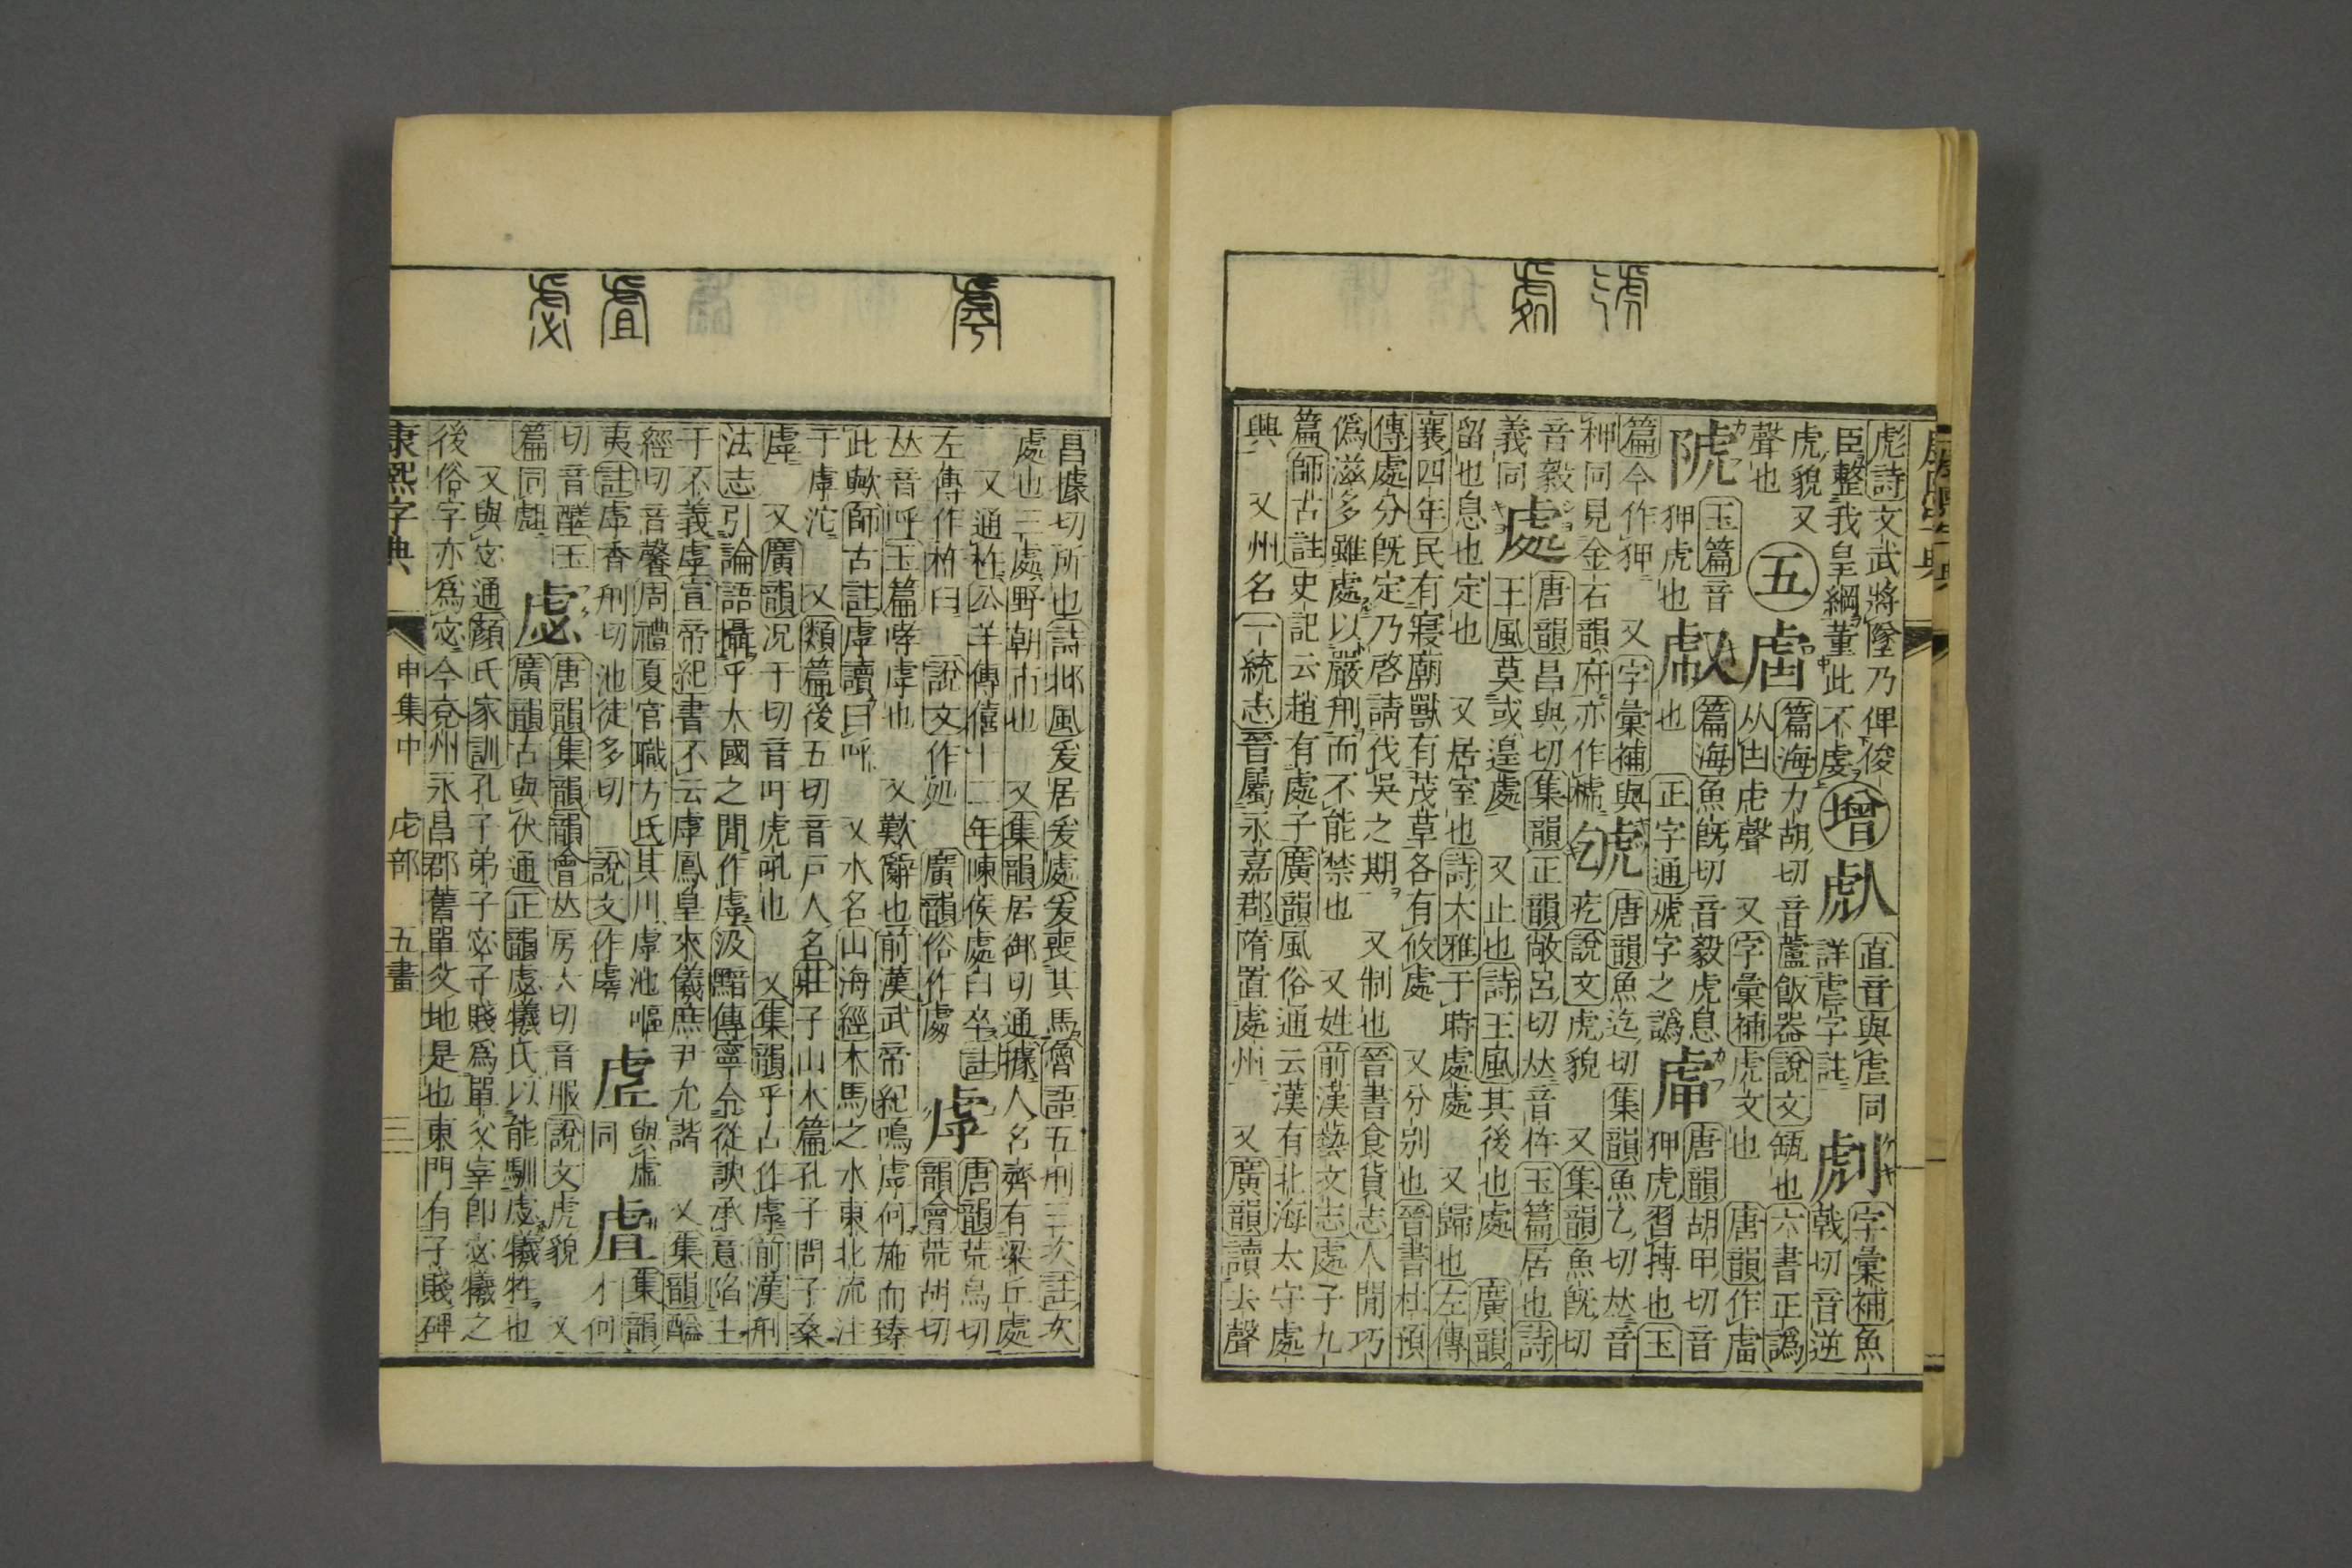 彪詩文武將墜乃俾俊
臣整我皇綱董此不虔
增
直音與虐同
詳虐字註
字彙補魚
戟切音逆
虎貌又
聲也
五
篇海力胡切音蘆飯器說文𤮊也六書正譌
从甾虍聲 又字彙補虎文也 唐韻作
玉篇音
篇海魚旣切音毅虎息
唐韻胡甲切音
狎虎也
也 正字通虓字之譌
狎虎習搏也玉
篇今作狎 又字彙補與
唐韻魚迄切集韻魚乙切𠀤音
狎同見金石韻府亦作
疙說文虎貌 又集韻魚旣切
音毅
義同
處
唐韻昌與切集韻正韻敞呂切𠀤音杵玉篇居也詩
王風莫或遑處 又止也詩王風其後也處 廣韻
留也息也定也 又居室也詩大雅于時處處 又歸也左傳
襄四年民有寢廟獸有茂草各有攸處 又分別也晉書杜預
傳處分旣定乃啓請伐吳之期 又制也晉書食貨志人閒巧
僞滋多雖處以嚴刑而不能禁也 又姓前漢藝文志處子九
篇師古註史記云趙有處子廣韻風俗通云漢有北海太守處
興 又州名一統志晉屬永嘉郡隋置處州 又廣韻讀去聲
昌據切所也詩邶風爰居爰處爰喪其馬魯語五刑三次註次
處也三處野朝市也 又集韻居御切通據人名齊有梁丘處
又通杵公羊傳僖十二年陳侯處臼卒註
左傳作杵臼 說文作処 廣韻俗作䖏
虖
唐韻荒烏切
韻會荒胡切
𠀤音呼玉篇哮虖也 又歎辭也前漢武帝紀嗚虖何施而臻
此歟師古註虖讀曰呼 又水名山海經木馬之水東北流注
于虖沱 又類篇後五切音戶人名莊子山木篇孔子問子桑
虖 又廣韻況于切音吁虎吼也 又集韻乎古作虖前漢刑
法志引論語攝乎大國之閒作虖汲黯傳寧令從諛承意陷主
于不義虖宣帝紀書不云虖鳳皇來儀庶尹允諧 又集韻醯
經切音馨周禮夏官職方氏其川虖池嘔
夷註虖香刑切池徒多切 說文作虖
與虛
同
集韻
才何
切音醝玉
篇同䖕
虙
唐韻集韻韻會𠀤房六切音服說文虎貌 又
廣韻古與伏通正韻虙犧氏以能馴虙犧牲也
又與宓通顏氏家訓孔子弟子宓子賤爲單父宰卽宓犧之
後俗字亦爲宓今兗州永昌郡舊單父地是也東門有子賤碑
康熙字典 申集中 虍部 五畫 三